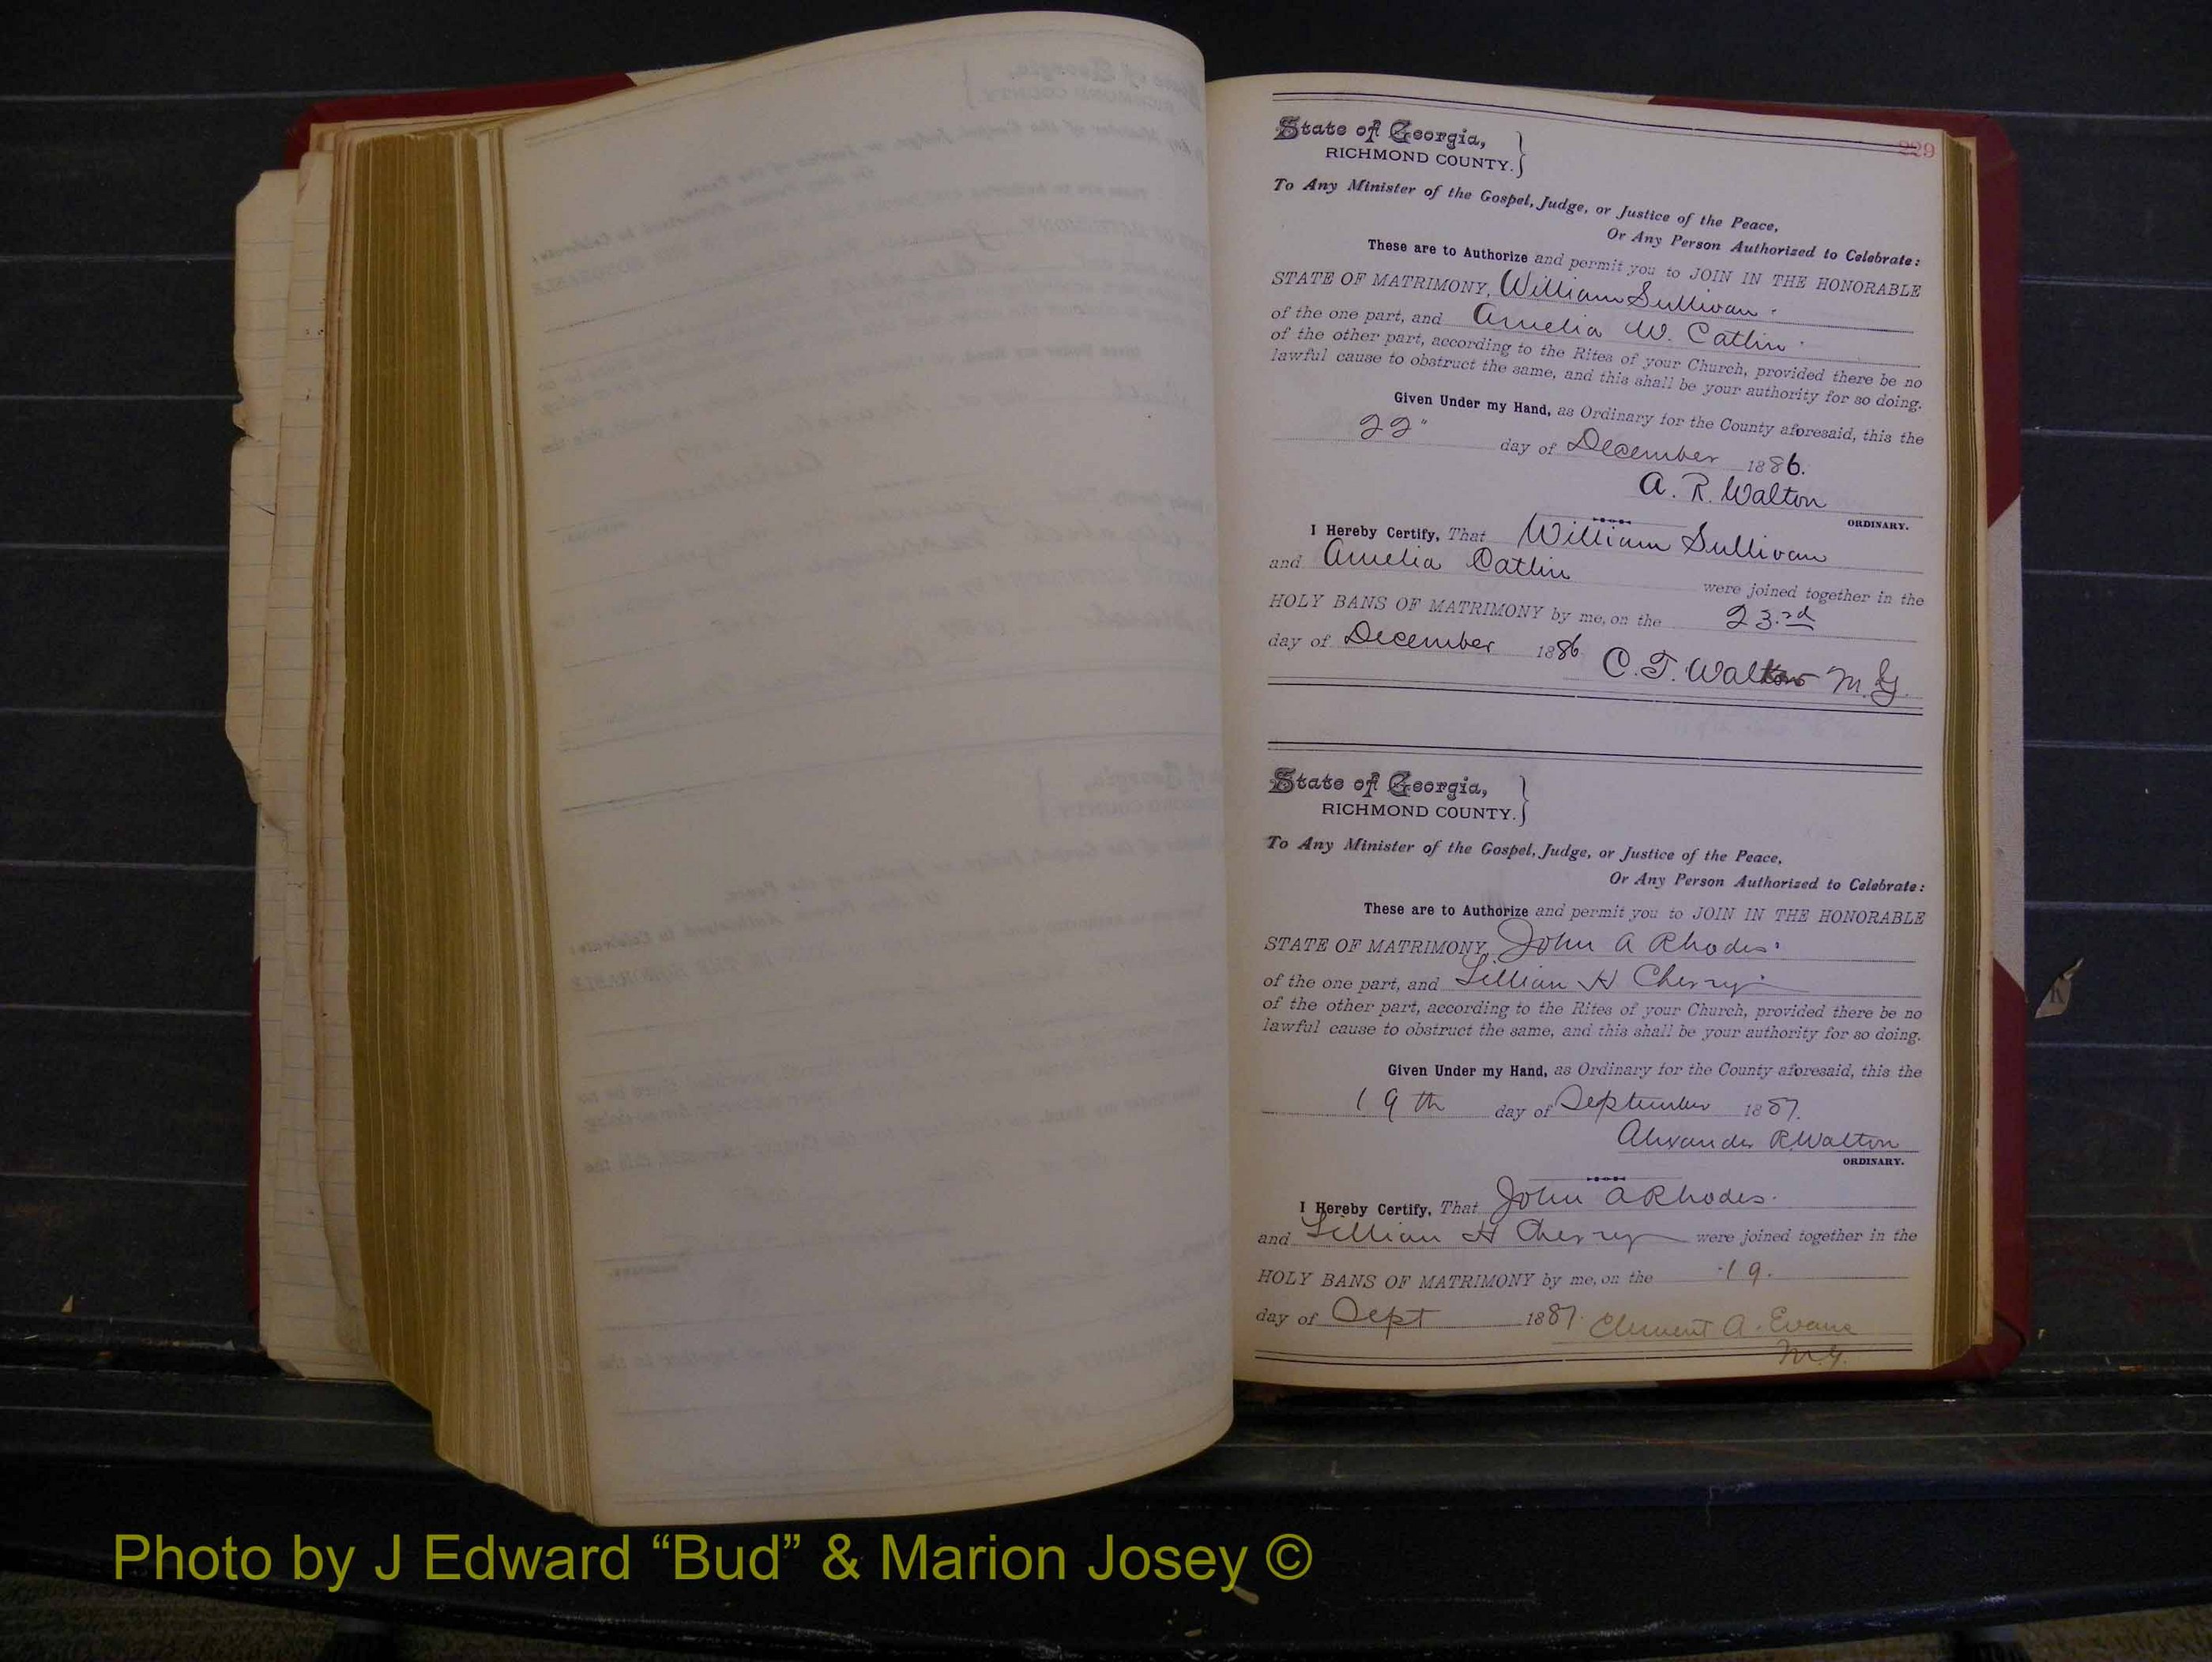 229
State of Georgia,
RICHMOND COUNTY.
To Any Minister of the Gospel, Judge, or Justice of the Peace,
Or Any Person Authorized to Celebrate:
These are to Authorize and permit you to JOIN IN THE HONORABLE
STATE OF MATRIMONY, William Sullivan
of the one part, and Amelia W. Catlin
of the other part, according to the Rites of your Church, provided there be no
lawful cause to obstruct the same, and this shall be your authority for so doing.
Given Under my Hand, as Ordinary for the County aforesaid, this the
22" day of December 1886.
A. R. Walton
ORDINARY.
I Hereby Certify, That William Sullivan
and Amelia Catlin were joined together in the
HOLY BANS OF MATRIMONY by me, on the 23.rd
day of December 1886
C. T. Walker M. G.
State of Georgia,
RICHMOND COUNTY.
To Any Minister of the Gospel, Judge, or Justice of the Peace,
Or Any Person Authorized to Celebrate:
These are to Authorize and permit you to JOIN IN THE HONORABLE
STATE OF MATRIMONY, John A Rhodes
of the one part, and Lillian H Cherry
of the other part, according to the Rites of your Church, provided there be no
lawful cause to obstruct the same, and this shall be your authority for so doing.
Given Under my Hand, as Ordinary for the County aforesaid, this the
19th day of September 1887.
Alexander R. Walton
ORDINARY.
I Hereby Certify, That John A Rhodes.
and Lillian H Cherry were joined together in the
HOLY BANS OF MATRIMONY by me, on the 19.
day of Sept 1887. Clement A. Evans
M.G.
Photo by J Edward “Bud” & Marion Josey ©